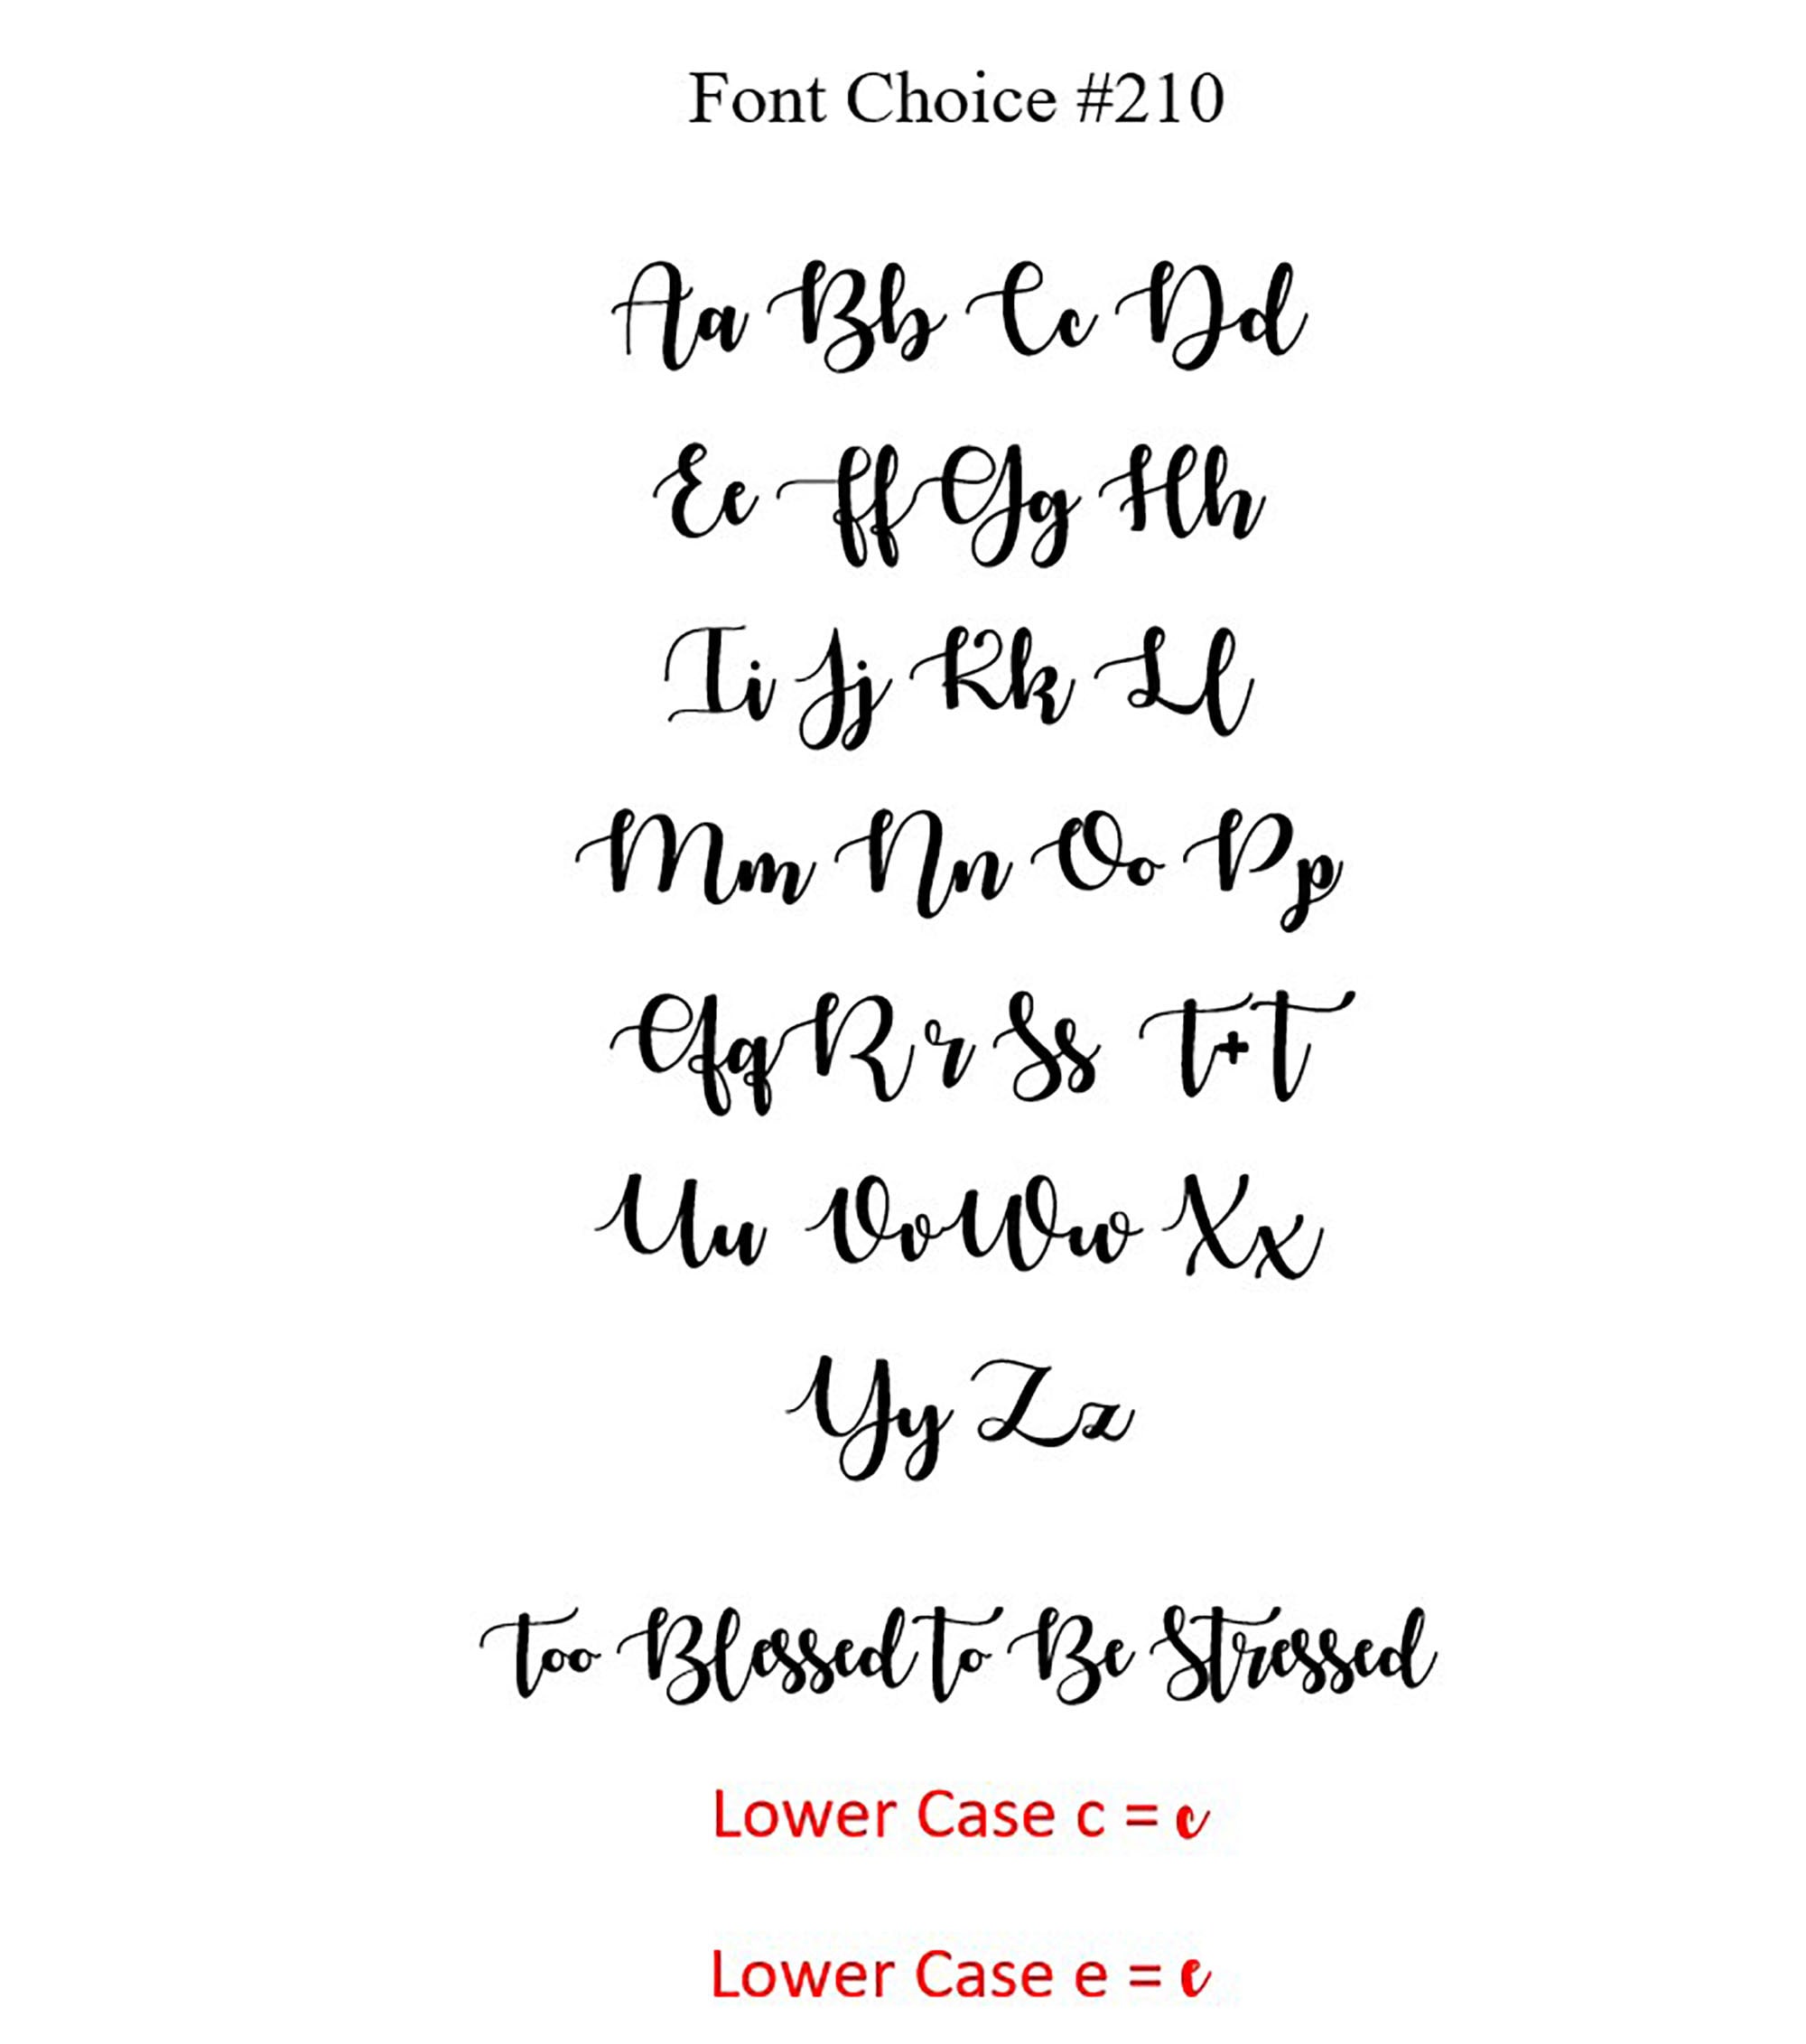 Font Choice #210
Aa Bb Cc Dd
Ee Ff Gg Hh
Ii Jj Kk Ll
Mm Nn Oo Pp
Qq Rr Ss T+T
Uu Vv Ww Xx
Yy Zz
Too Blessed To Be Stressed
Lower Case c = c
Lower Case e = e